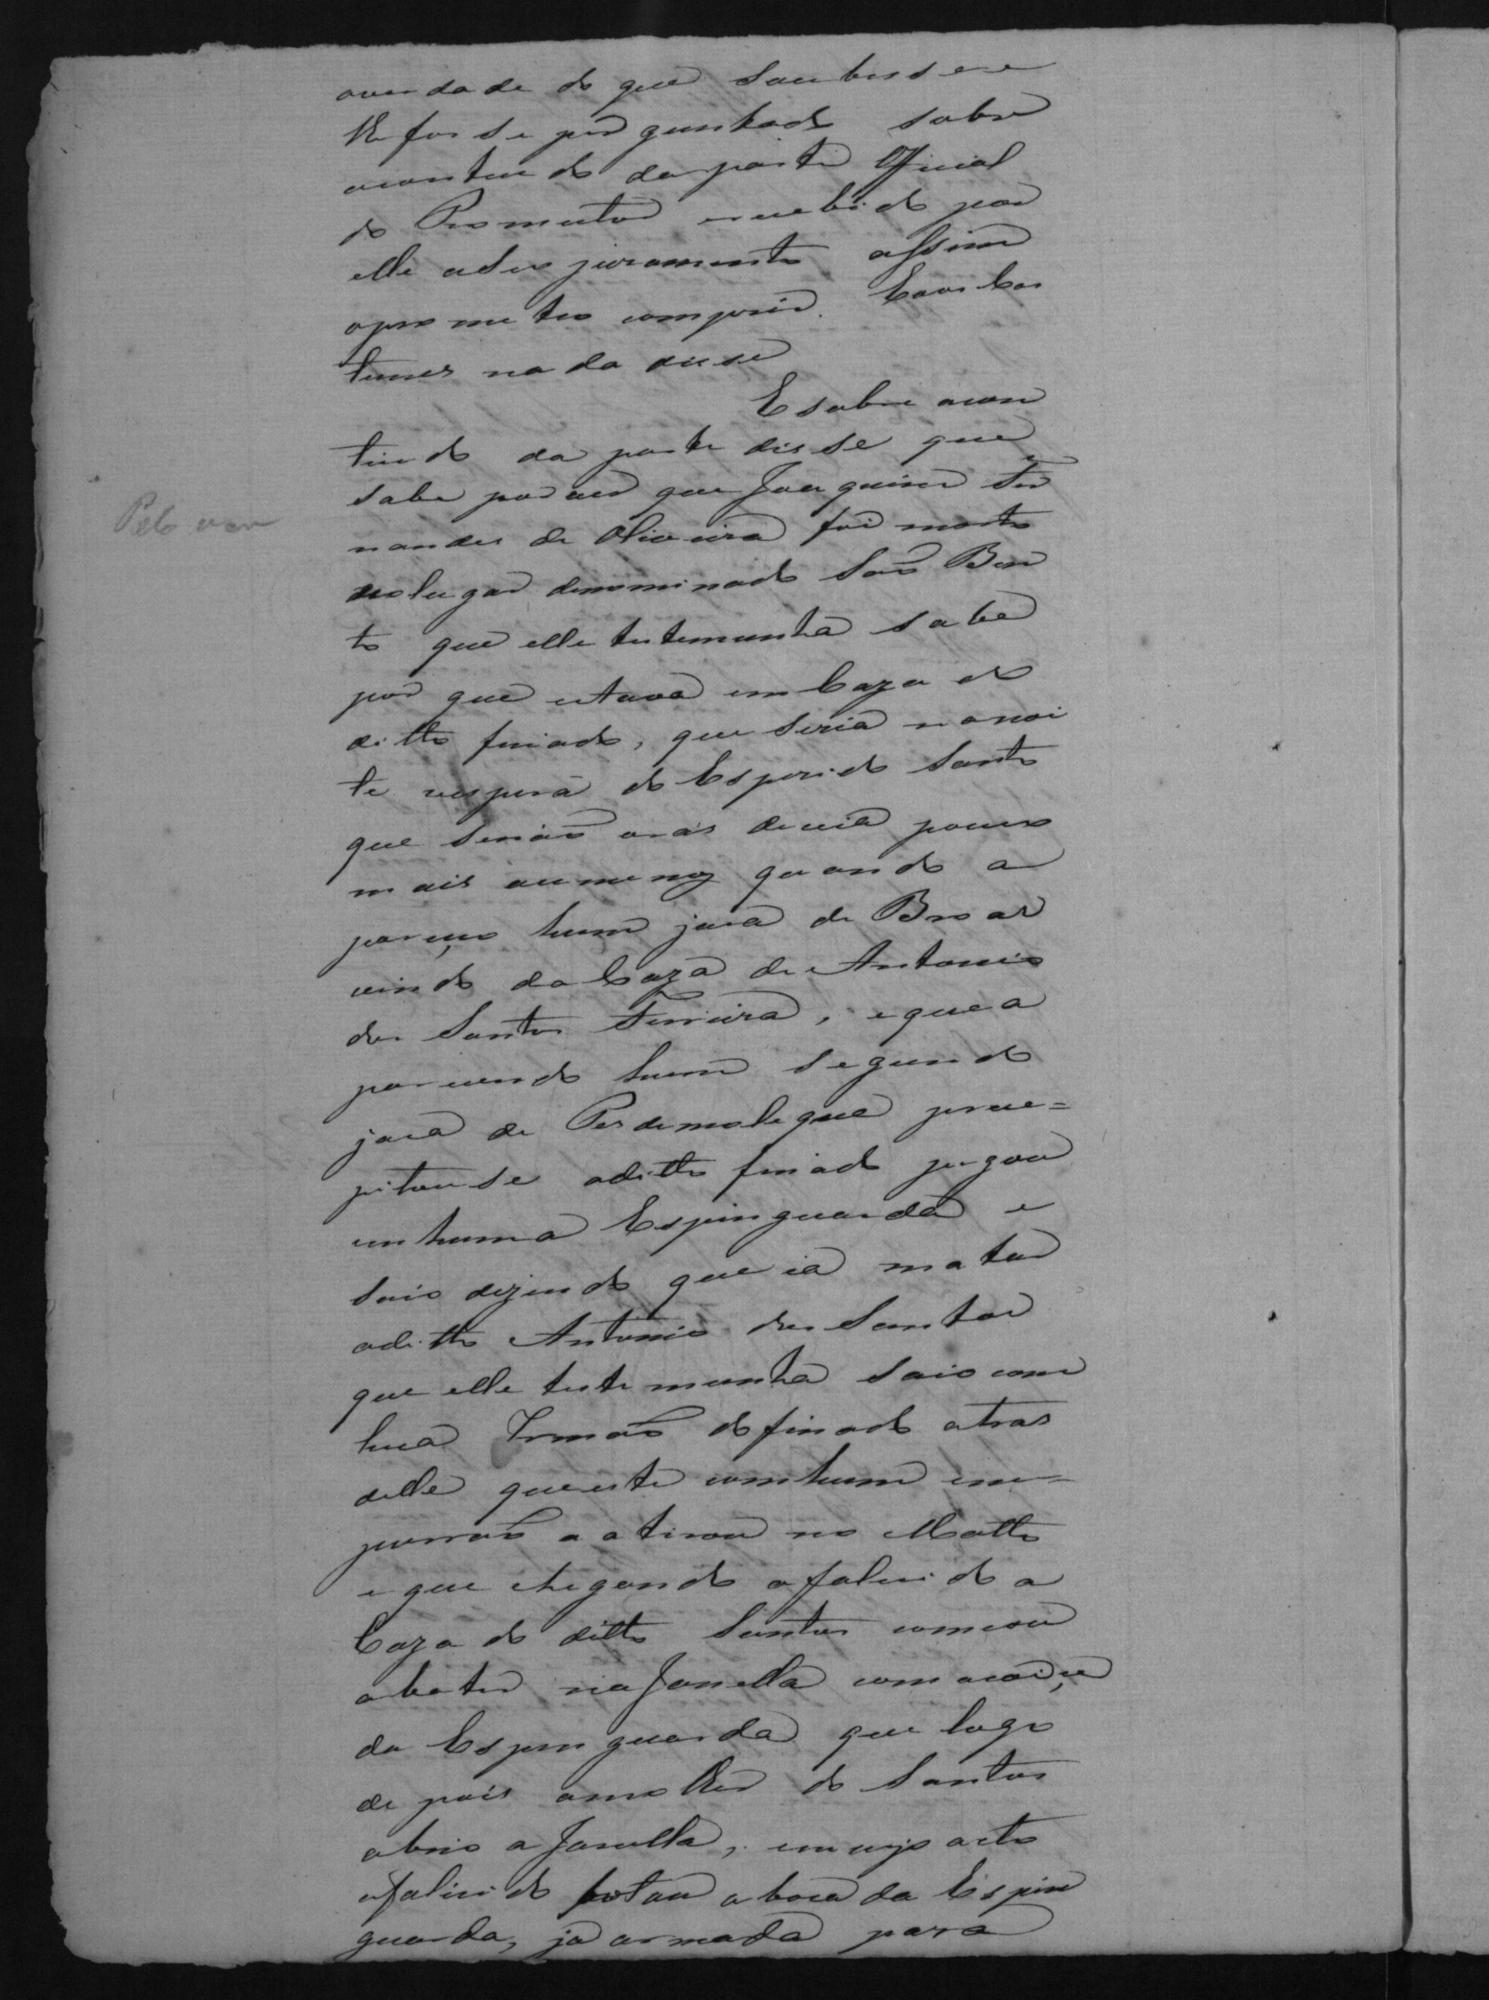 averdade do que soubesse e
lhe fosse perguntado sobre
oconteudo da parte Official
do Promutor e recebido por
elle odito juramento assim
oprometeo comprir. E aos cos
tumes nada disse
E sobre ocon
tiudo da parte disse que
sabe por ver que Joaquim Fer
nandes de Oliveira foi morto
no lugar denominado São Ben
to que elle testemunha sabe
por que estava em Caza do
ditto finado, que seria na noi
te vespera do Esperido Santo
que serião oras de ceia pouco
mais ou menos quando a
pareceo hum jucá de Broas
vindo da Caza de Antonio
dos Santos Ferreira, e que a
parecendo hum segundo
jucá de Pes de moleque preci=
pitouse oditto finado pegou
em huma Espinguarda e
saio dizendo que ia matar
oditto Antonio dos Santos
que elle testemunha saio com
hua Irmão do finado atras
delle que este com hum em=
purrão a atirou no Matto
e que chegando ofalecido a
Caza do ditto Santos comesou
abater na Janella com acoice
da Espinguarda que logo
depois amolher do Santos
abrio a Janella, em cujo acto
ofalecido botou aboca da Espin
guarda, ja armada para
Pelo ver